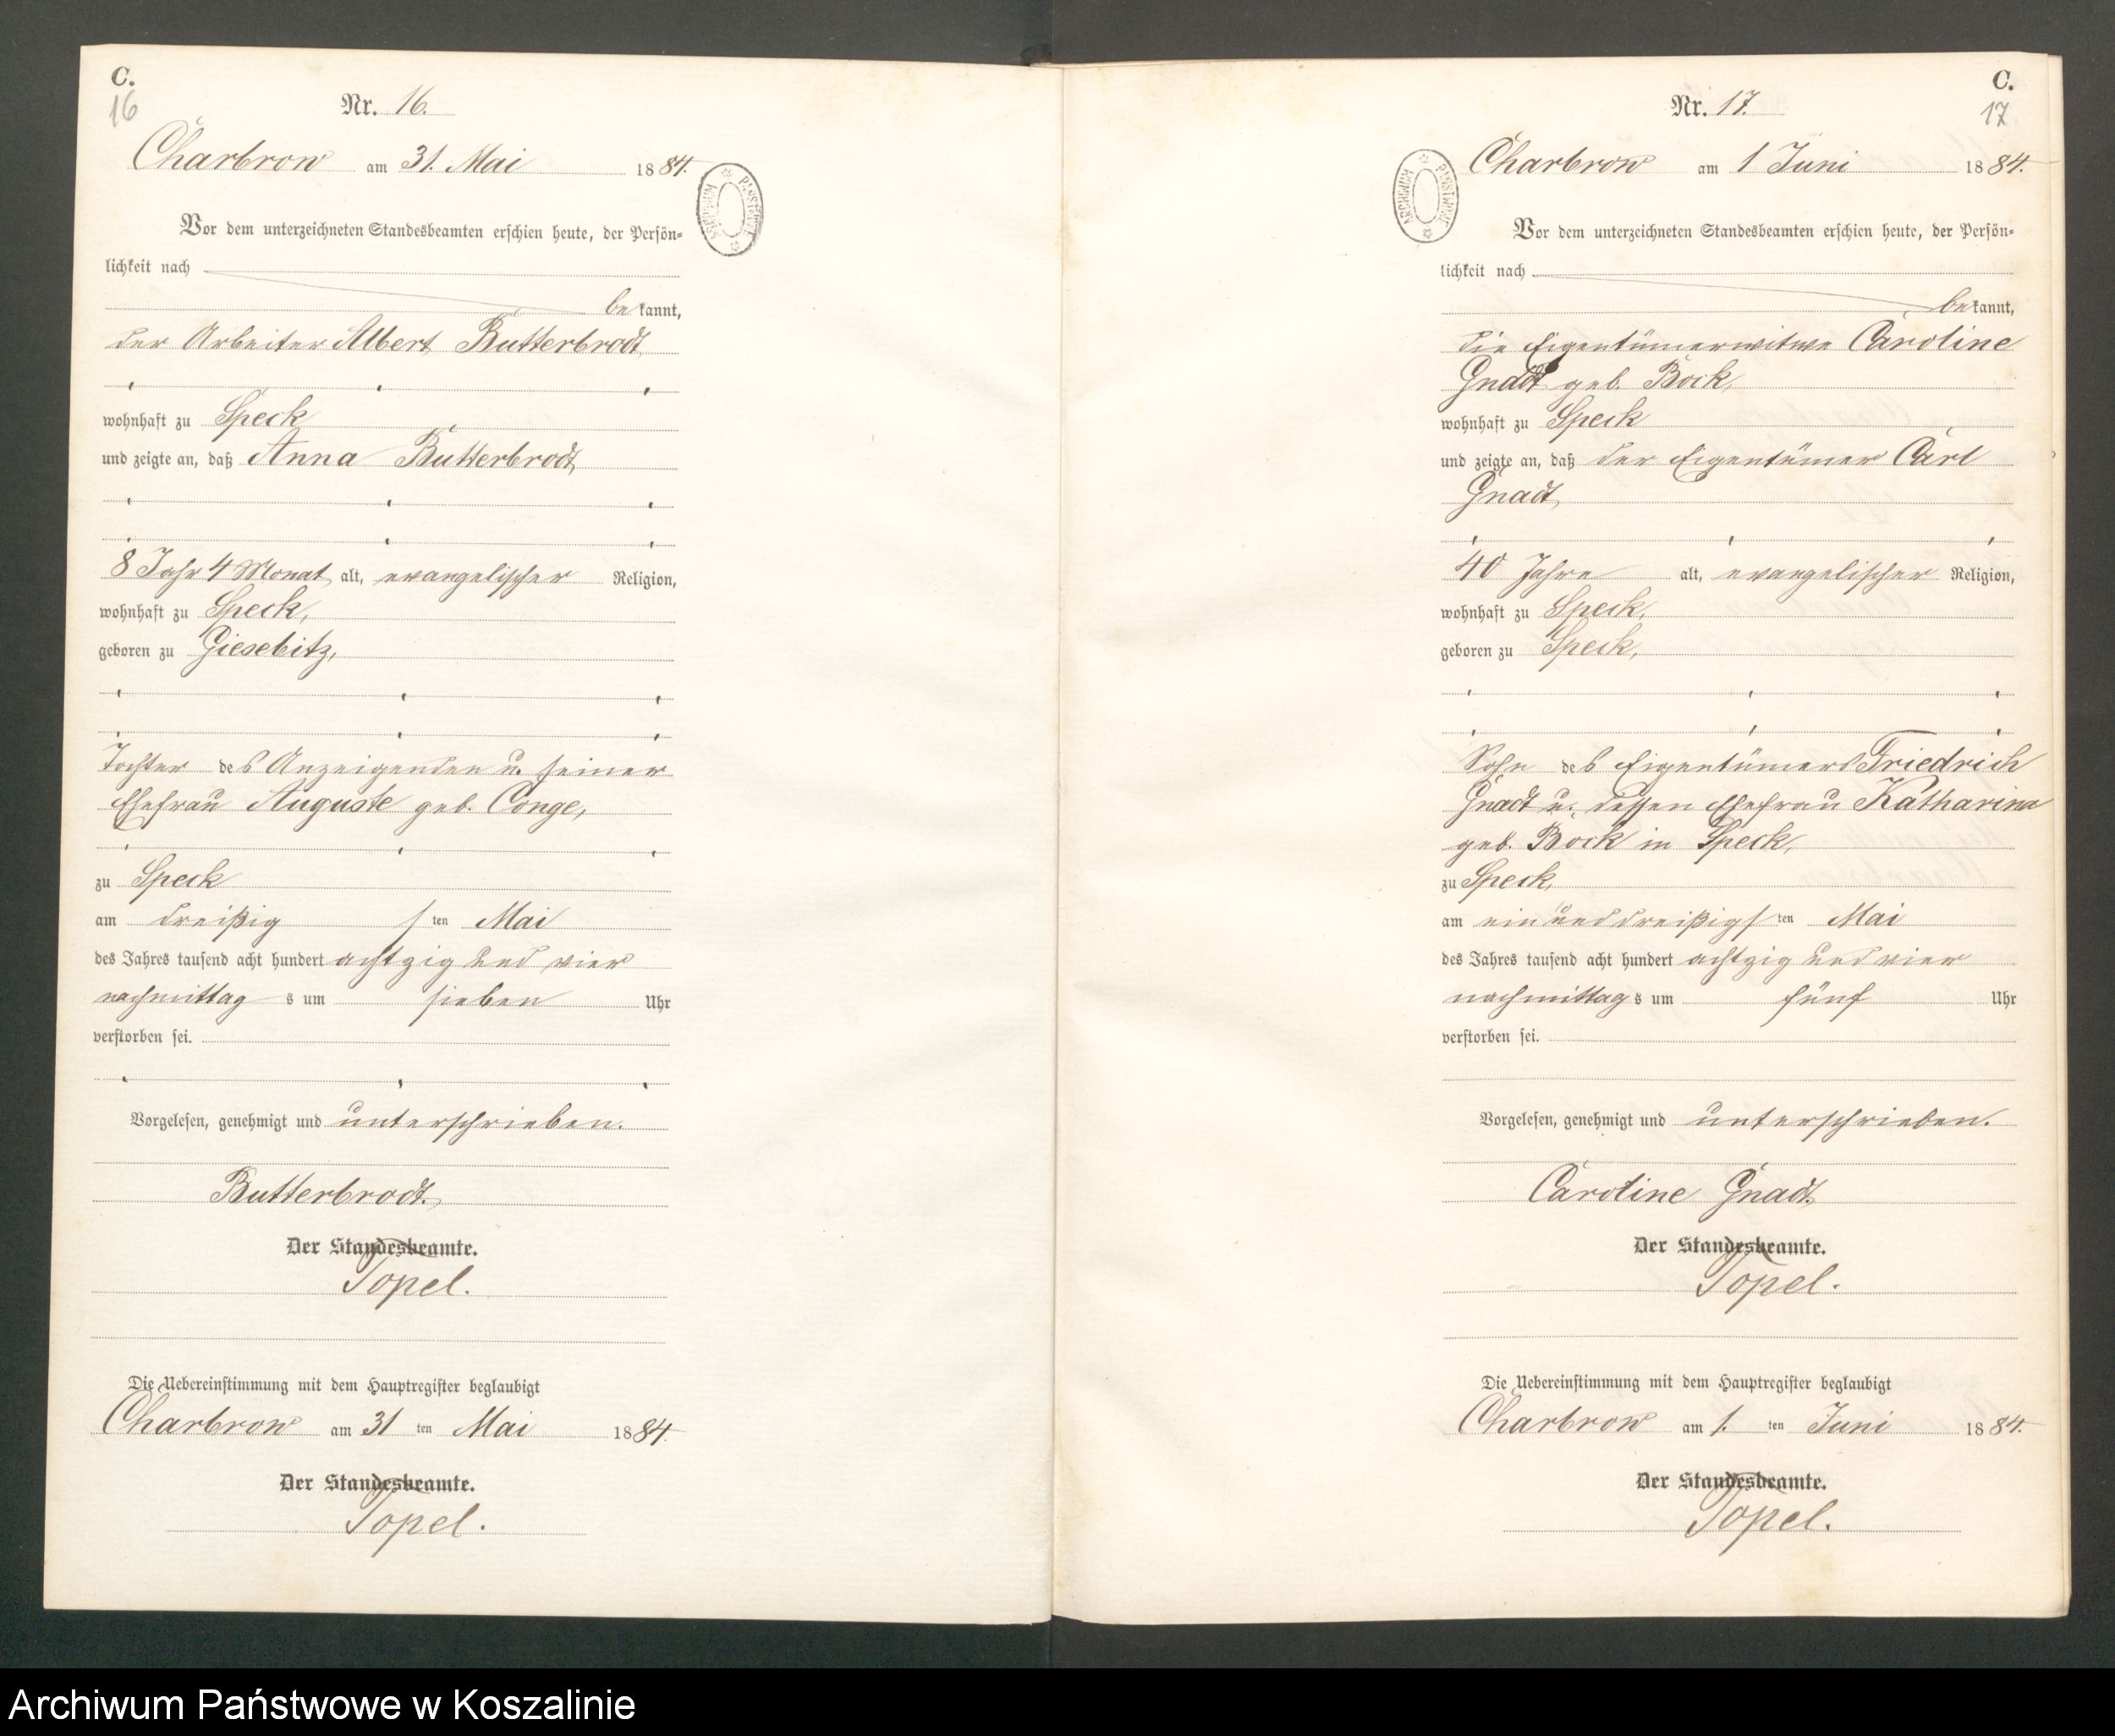 C.
16
Nr. 16.
Charbrow am 31. Mai 1884.
Vor dem unterzeichneten Standesbeamten erschien heute, der Persön=
lichkeit nach
bekannt,
der Arbeiter Albert Butterbrodt
wohnhaft zu Speck
und zeigte an, daß Anna Butterbrodt,
8 Jahr 4 Monat, alt, evangelischer Religion,
wohnhaft zu Speck,
geboren zu Giesebitz,
Tochter des Anzeigenden u. seiner
Ehefrau Auguste geb. Conge,
zu Speck
am dreißigsten Mai
des Jahres tausend acht hundert achtzig und vier
nachmittags um sieben Uhr
verstorben sei.
Vorgelesen, genehmigt und unterschrieben.
Butterbrodt.
Der Standesbeamte.
Topel.
Die Uebereinstimmung mit dem Hauptregister beglaubigt
Charbrow am 31 ten Mai 1884.
Der Standesbeamte.
Topel.
ARCHIWUM PAŃSTWOWE
C.
17
Nr. 17.
Charbrow am 1 Juni 1884.
Vor dem unterzeichneten Standesbeamten erschien heute, der Persön=
lichkeit nach
bekannt,
die Eigentümerwitwe Caroline
Gnadt geb. Bock,
wohnhaft zu Speck
und zeigte an, daß der Eigentümer Carl
Gnadt,
40 Jahre alt, evangelischer Religion,
wohnhaft zu Speck,
geboren zu Speck,
Sohn des Eigentümers Friedrich
Gnadt u. dessen Ehefrau Katharina
geb. Bock in Speck,
zu Speck,
am ein und dreißigsten Mai
des Jahres tausend acht hundert achtzig und vier
nachmittags um fünf Uhr
verstorben sei.
Vorgelesen, genehmigt und unterschrieben.
Caroline Gnadt.
Der Standesbeamte.
Topel.
Die Uebereinstimmung mit dem Hauptregister beglaubigt
Charbrow am 1. ten Juni 1884.
Der Standesbeamte.
Topel.
ARCHIWUM PAŃSTWOWE
Archiwum Państwowe w Koszalinie